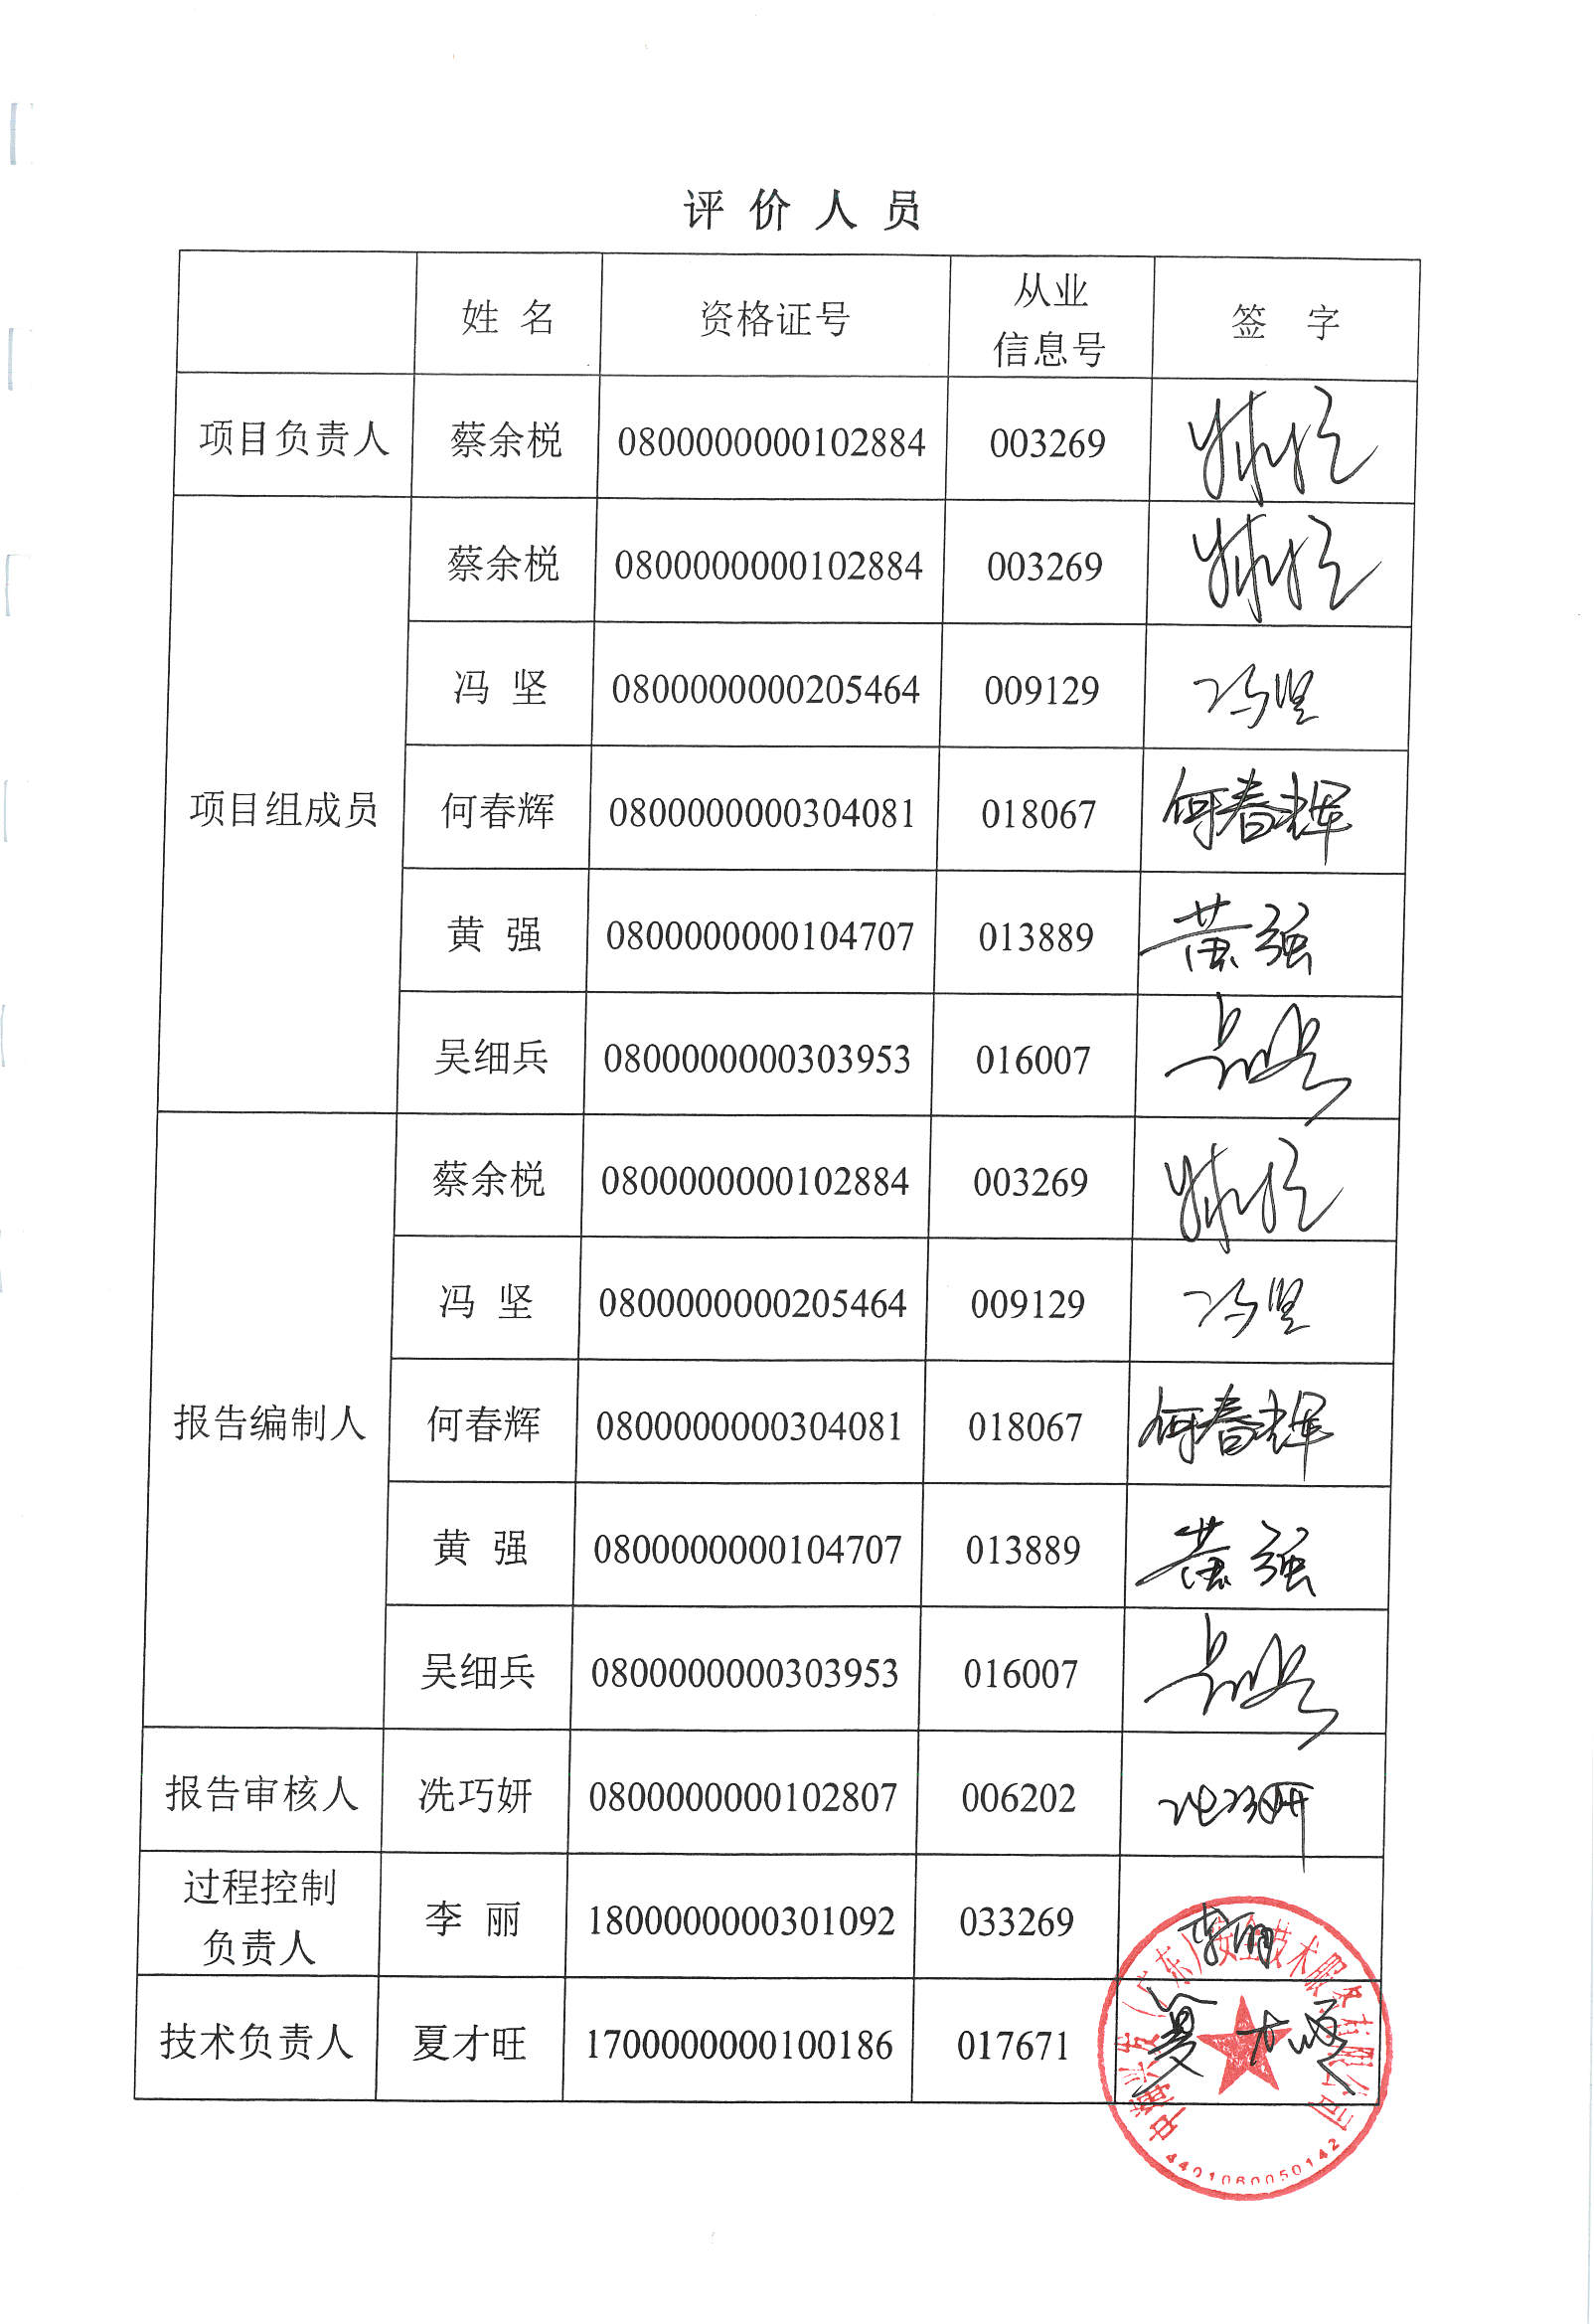 评价人员
姓名 资格证号 从业信息号 签字
项目负责人 蔡余棁 0800000000102884 003269
项目组成员 蔡余棁 0800000000102884 003269
冯坚 0800000000205464 009129 冯坚
何春辉 0800000000304081 018067 何春辉
黄强 0800000000104707 013889 黄强
吴细兵 0800000000303953 016007
报告编制人 蔡余棁 0800000000102884 003269
冯坚 0800000000205464 009129 冯坚
何春辉 0800000000304081 018067 何春辉
黄强 0800000000104707 013889 黄强
吴细兵 0800000000303953 016007
报告审核人 冼巧妍 0800000000102807 006202
过程控制负责人 李丽 1800000000301092 033269 李丽
技术负责人 夏才旺 1700000000100186 017671 夏才旺
(广东)安全技术服务有限公司
4401060050142